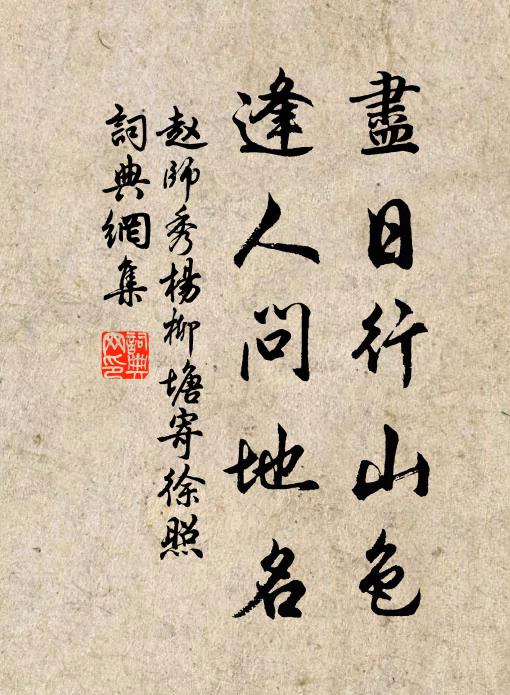 盡日行山色
逢人問地名
赵師秀楊柳塘寄徐照
詞典網集
詞典
网印